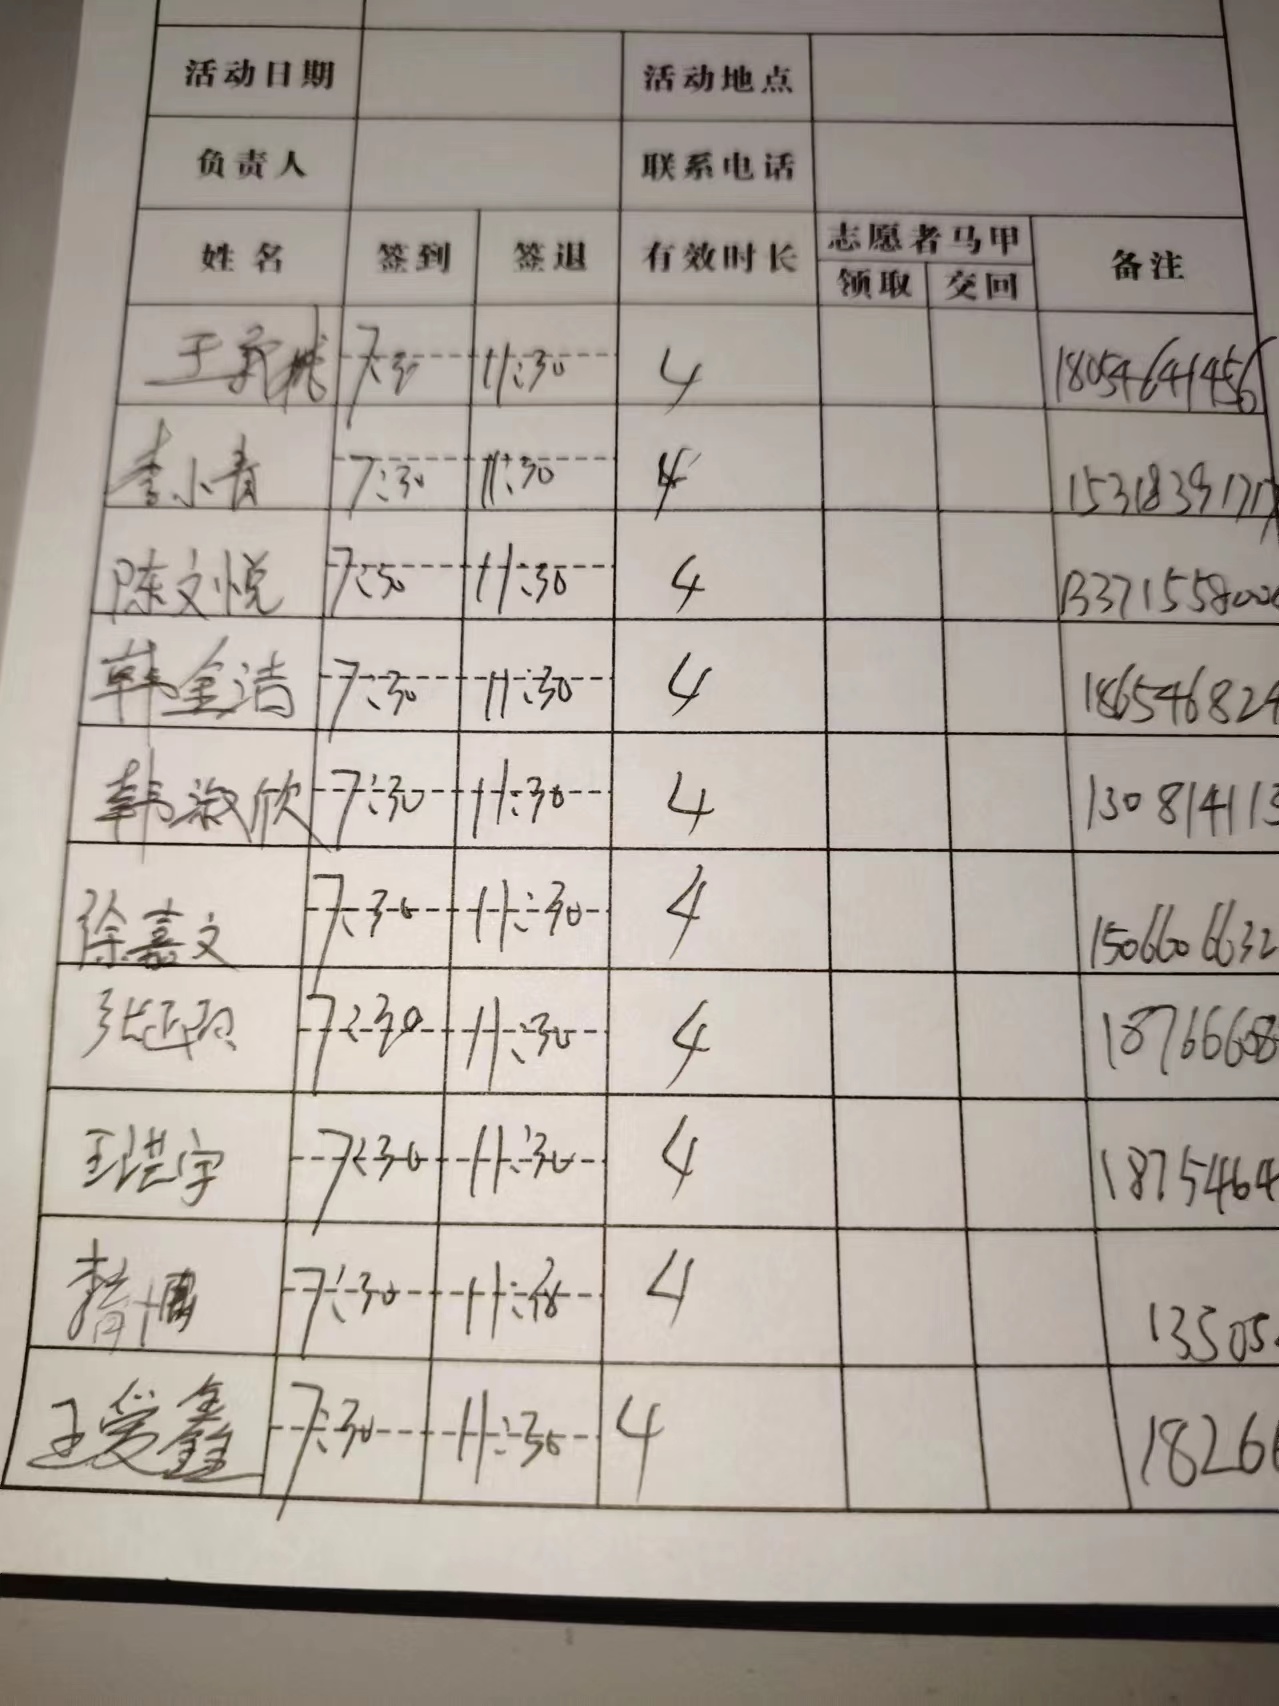 活动日期 活动地点
负责人 联系电话
姓名 签到 签退 有效时长 志愿者马甲 备注
领取 交回
7:30 11:30 4 18054641456
李小青 7:30 11:30 4 1531839171
陈文悦 7:30 11:30 4 133715580
韩金洁 7:30 11:30 4 186546824
韩淑欣 7:30 11:30 4 130814113
徐嘉文 7:30 11:30 4 1506606632
张 7:30 11:30 4 18766608
王洪宇 7:30 11:30 4 18754464
7:30 11:30 4 13505
王爱鑫 7:30 11:30 4 18266